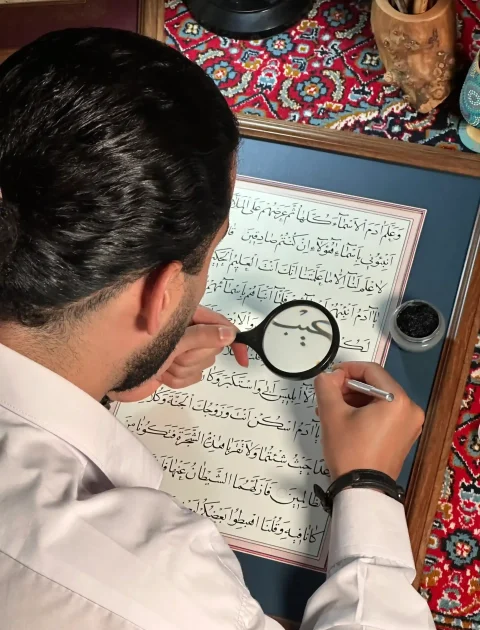 وَعَلَّمَ آدَمَ الْأَسْمَاءَ كُلَّهَا ثُمَّ عَرَضَهُمْ عَلَى
أَنْبِئُونِي بِأَسْمَاءِ هَؤُلَاءِ إِنْ كُنْتُمْ صَادِقِينَ
لَا عِلْمَ لَنَا إِلَّا مَا عَلَّمْتَنَا إِنَّكَ أَنْتَ الْعَلِيمُ
يَا آدَمُ أَنْبِئْهُمْ فَلَمَّا أَنْبَأَهُمْ بِأَسْمَائِهِمْ
لَكُمْ غَيْبَ
إِلَّا إِبْلِيسَ أَبَى وَاسْتَكْبَرَ
يَا آدَمُ اسْكُنْ أَنْتَ وَزَوْجُكَ الْجَنَّةَ وَكُلَا
حَيْثُ شِئْتُمَا وَلَا تَقْرَبَا هَذِهِ الشَّجَرَةَ فَتَكُونَا مِنَ
الظَّالِمِينَ فَأَزَلَّهُمَا الشَّيْطَانُ عَنْهَا
كَانَا فِيهِ وَقُلْنَا اهْبِطُوا بَعْضُكُمْ